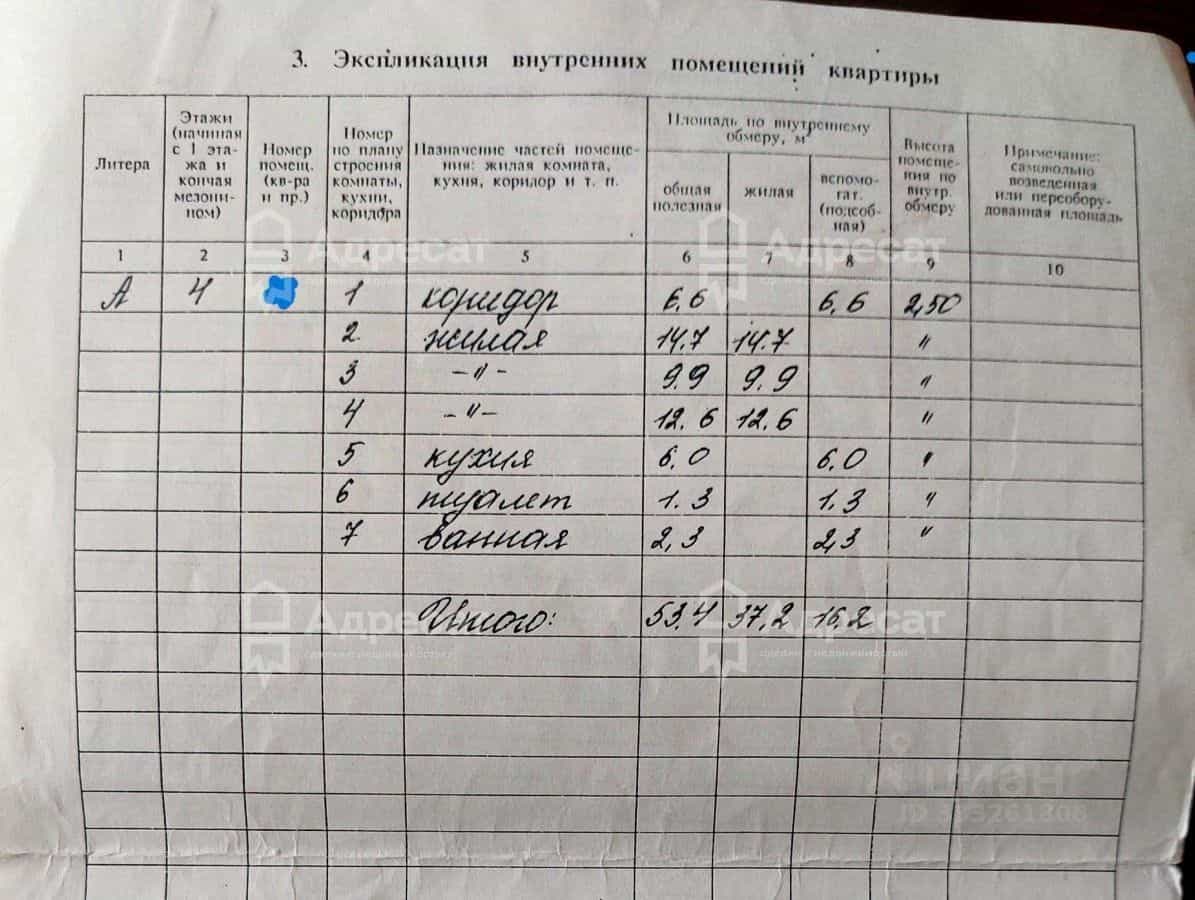 3. Экспликация внутренних помещений квартиры
Литера
Этажи (начиная с 1 эта- жа и кончая мезони- ном)
Номер помещ. (кв-ра и пр.)
Номер по плану строения комнаты, кухни, коридора
Назначение частей помеще- ния: жилая комната, кухня, коридор и т. п.
Площадь по внутреннему обмеру, м²
общая полезная
жилая
вспомо- гат. (подсоб- ная)
Высота помеще- ния по внутр. обмеру
Примечание: самовольно возведенная или переобору- дованная площадь
1 2 3 4 5 6 7 8 9 10
А 4 1 коридор 6,6 6,6 2,50
2. жилая 14.7 14.7 "
3 -"- 9.9 9.9 "
4 -"- 12.6 12.6 "
5 кухня 6,0 6,0 "
6 туалет 1.3 1.3 "
7 ванная 2,3 2,3 "
Итого: 53,4 37,2 16,2
Адресат
Адресат
Адресат
Адресат
циан